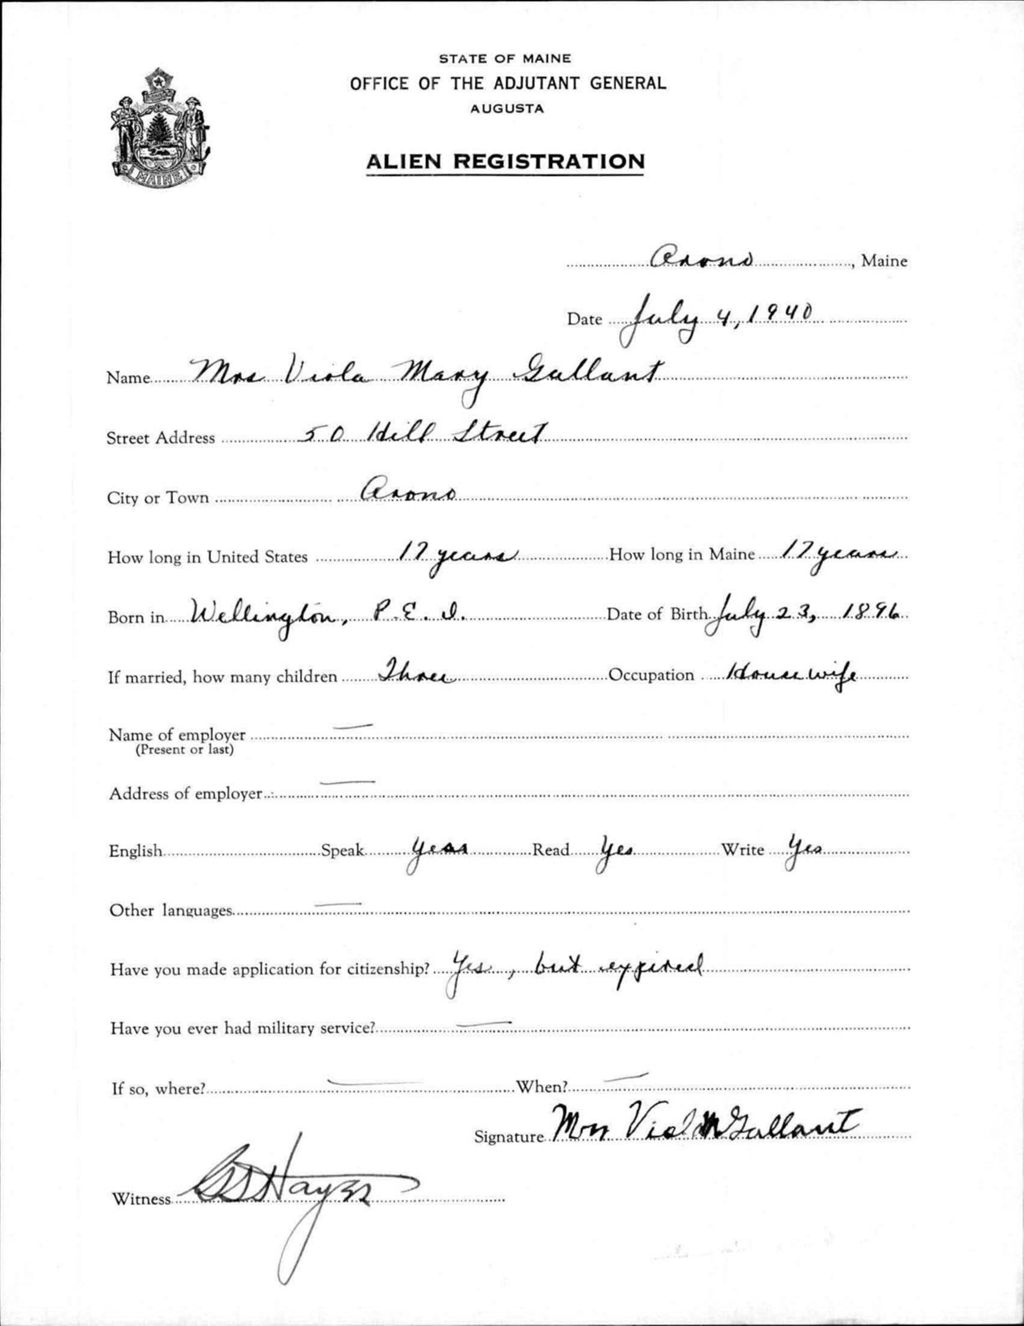 STATE OF MAINE
OFFICE OF THE ADJUTANT GENERAL
AUGUSTA
ALIEN REGISTRATION
MAINE
Orono, Maine
Date July 4, 1940
Name Mrs Viola Mary Gallant
Street Address 50 Hill Street
City or Town Orono
How long in United States 17 years How long in Maine 17 years
Born in Wellington, P.E.I. Date of Birth July 23, 1896
If married, how many children Three Occupation Housewife
Name of employer —
(Present or last)
Address of employer —
English Speak Yes Read Yes Write Yes
Other languages —
Have you made application for citizenship? Yes, but expired
Have you ever had military service? —
If so, where? — When? —
Signature Mrs Viol M Gallant
Witness Hayes